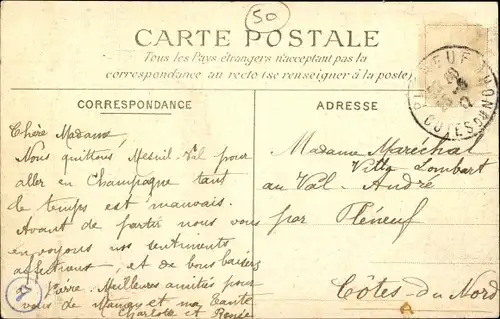 50
CARTE POSTALE
Tous les Pays étrangers n'acceptant pas la
correspondance au recto (se renseigner à la poste)
CORRESPONDANCE
ADRESSE
Chère Madame,
Nous quittons Mesnil-Val pour
aller en Champagne tant
le temps est mauvais.
Avant de partir nous vous
envoyons nos sentiments
affectueux, et de bons baisers
à Pierre. Meilleures amitiés pour
vous de Maman et ma Tante
Charlotte et Renée
Madame Maréchal
Villa Lombart
au Val-André
par Pléneuf
Côtes-du-Nord
A